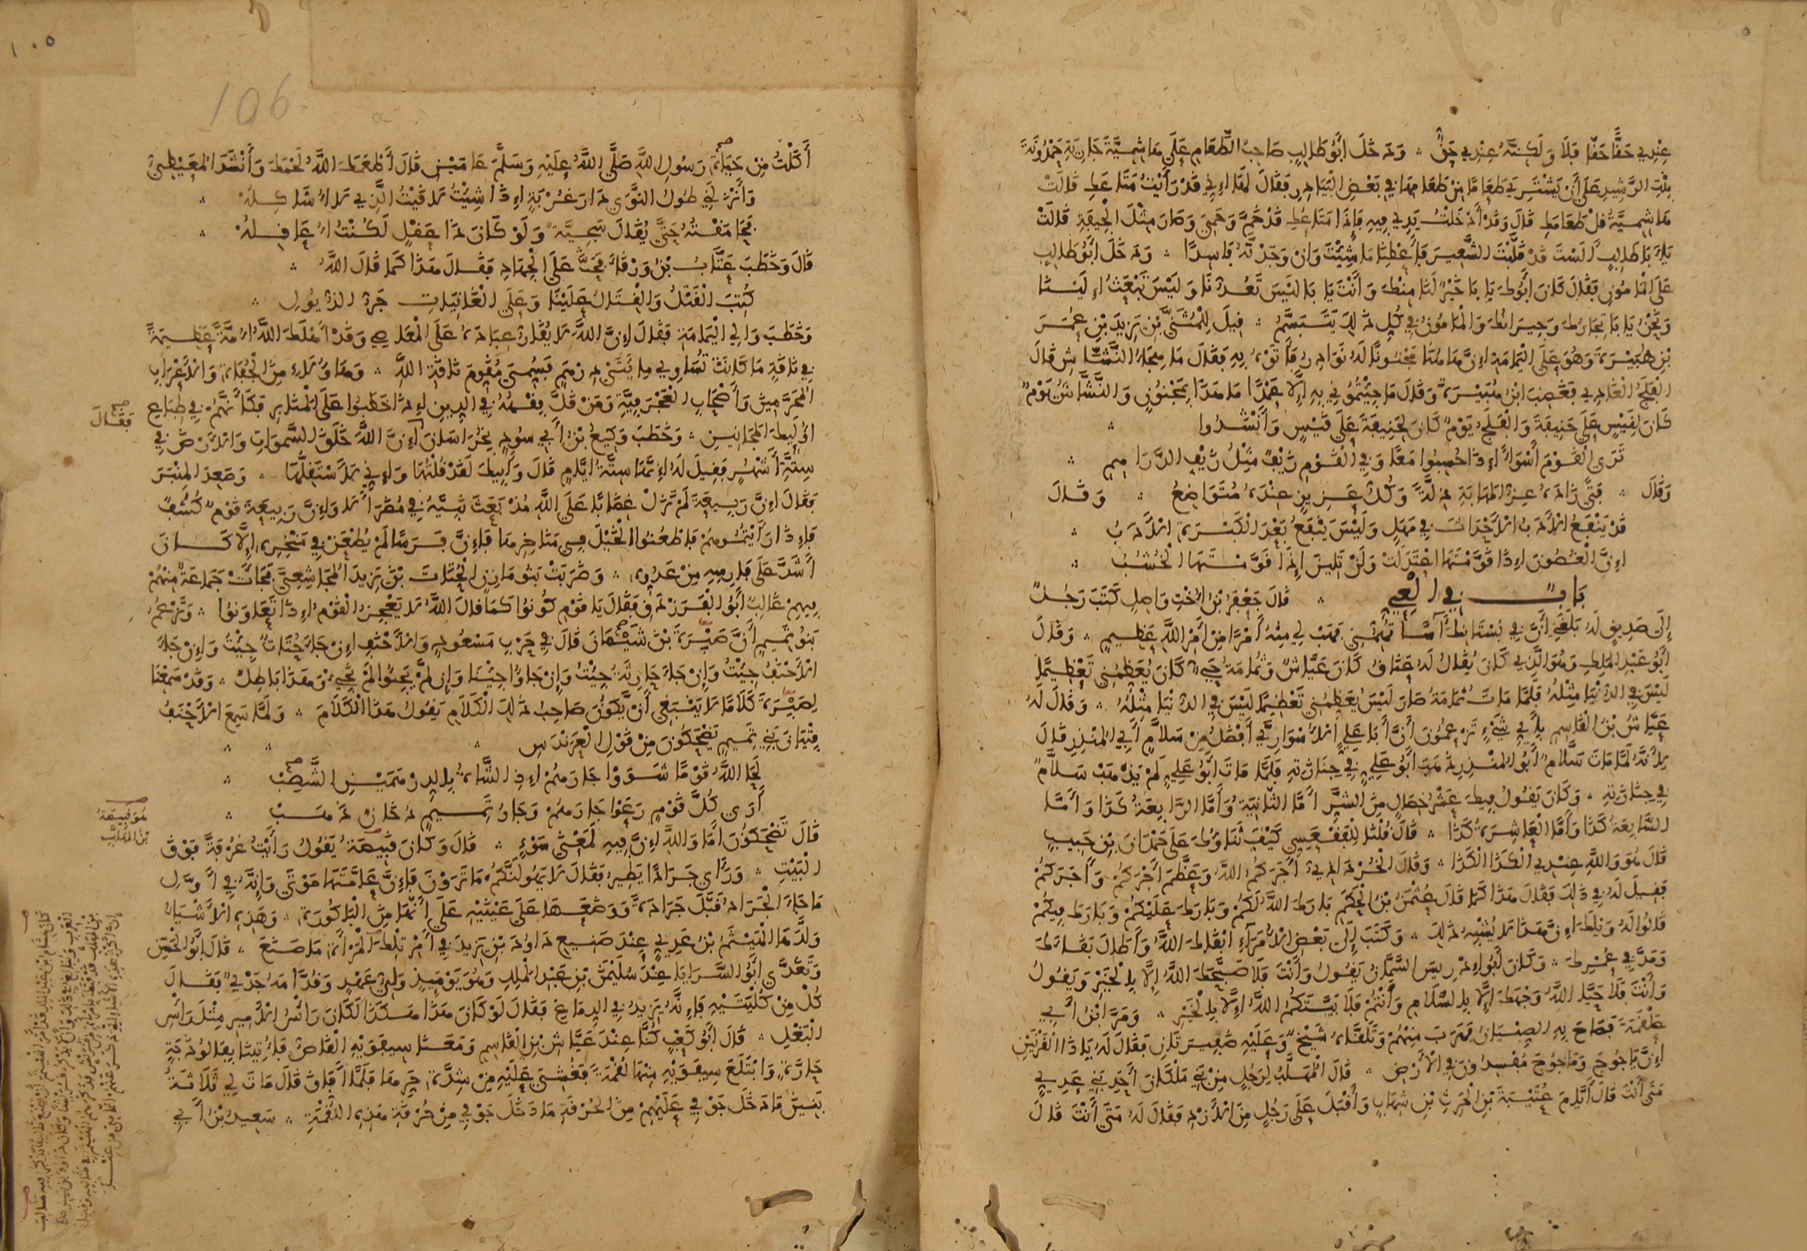 عندي حقًّا حقًّا فلا ولكنه عندي حق وذخل أبو طالب صاحب الطعام على هاشمية جارية حمدونة
بنت الرشيد على أن يشتري طعاما من طعامها في بعض البيادر فقال لها إني قد رأيت متاعك قالت
هاشمية قل طعامك قال وقد أدخلت يدي فيه فإذا متاعك قد خم وحمي وصار مثل الجيفة قالت
يا أبا طالب ألست قد قلبت الشعير فأعطنا ما شئت وإن وجدته فاسدا ودخل أبو طالب
على المأمون فقال كان أبوك يا با خير لنا منك وأنت يا با ليس تعدنا وليس تبعث إلينا
ونحن يا با تجارك وجيرانك والمأمون في كل ذلك يتبسم قيل للمثنى بن يزيد بن عمر
بن هبيرة وهو على اليمامة إن هاهنا مجنونا له نوادر فأتوه به فقال ما هجاء النشاش قال
الفلج العادي فغضب ابن هبيرة وقال ما جئتموني به إلا عمدا ما هذا بمجنون والنشاش يوم
كان لقيس على حنيفة والفلج يوم كان لحنيفة على قيس وأنشدوا
ترى القوم أسواء إذا جلسوا معا وفي القوم زيف مثل زيف الدراهم
وقال فتى زاده عز المهابة ذلة وكل عزيز عنده متواضع وقال
قد ينفع الأدب الأحداث في مهل وليس ينفع بعد الكبرة الأدب
إن الغصون إذا قومتها اعتدلت ولن تلين إذا قومتها الخشب
باب في العي قال جعفر بن أخت واصل كتب رجل
إلى صديق له بلغني أن في بستانك آسا فهب لي منه أمرا من أمر الله عظيم وقال
أبو عبد الملك وهو الذي كان يقال له عناق كان عياش وثمامة حي كان يعظمني تعظيما
ليس في الدنيا مثله فلما مات ثمامة صار ليس يعظمني تعظيما ليس في الدنيا مثله وقال له
عياش بن القاسم بأي شيء تزعمون أن أبا علي الأسواري أفضل من سلام أبي المنذر قال
لأنه لما مات سلام أبو المنذر ذهب أبو علي في جنازته فلما مات أبو علي لم يذهب سلام
في جنازته وكان يقول فيك عشر خصال من الشر أما الثانية كذا وأما الرابعة كذا وأما
السابعة كذا وأما العاشرة كذا قال قلنا للفقعسي كيف ثناؤك على حمدان بن حبيب
قال هو والله عندي الكذا الكذا وقال الخزدادي آجركم الله وعظم أجركم وأجركم
فقيل له في ذلك فقال هذا كما قال عثمن بن الحكم بارك الله لكم وبارك عليكم وبارك فيكم
قالوا له ويلك إن هذا لا يشبه ذلك وكتب إلى بعض الأمراء أبقاك الله وأطال بقاءك
ومد في عمرك وكان أبو إدريس السمان يقول وأنت فلا صبحك الله إلا بالخير ويقول
وأنت فلا حيا الله وجهك إلا بالسلام وأنتم فلا بيتكم الله إلا بالخير ومر ابن أبي
علقمة فصاح به الصبيان فهرب منهم وتلقاه شيخ وعليه ضفيرتان فقال له يا ذا القرنين
إن ياجوج وماجوج مفسدون في الأرض قال المهلب لرجل من بني ملكان أحد بني عدي
متى أنت قال أيام عتيبة بن الحرث بن شهاب وأقبل على رجل من الأزد فقال له متى أنت قال
١٠٥
106
أكلت من حياة رسول الله صلى الله عليه وسلم عامين قال أطعمك الله لحمك وأنشد المعيطي
وأنزلني طول النوى دار غربة إذا شئت لاقيت الذي لا أشاكله
فحامقته حتى يقال سجية ولو كان ذا عقل لكنت أعاقله
قال وخطب عتاب بن ورقاء فحث على الجهاد فقال هذا كما قال الله
كتب القتل والقتال علينا وعلى الغانيات جر الذيول
وخطب والي اليمامة فقال إن الله لا يقار عباده على المعاصي وقد أهلك الله أمة عظيمة
في ناقة ما كانت تساوي مائتي درهم فسمي مقوم ناقة الله وهاؤلاء من الجفاة والأعراب
المحرمين وأصحاب العجرفية ومن قل فقهه في الدين إذا خطبوا على المنابر فكأنهم في طباع
أولئك المجانين وخطب وكيع بن أبي سود بخراسان فقال إن الله خلق السموات والأرض في
ستة أشهر فقيل له إنما ستة أيام قال وأبيك لقد قلتها وإني لأستقلها وصعد المنبر
فقال إن ربيعة لم تزل غضابا على الله مذ بعث نبيه في مضر ألا وإن ربيعة قوم كشف
فإذا رأيتموهم فاطعنوا الخيل في مناخرها فإن فرسا لم يطعن في منخره إلا كان
أشد على فارسه من عدوه وضربت بنو مازن الحتات بن يزيد المجاشعي فجاءت جماعة منهم
فيهم غالب أبو الفرزدق فقال يا قوم كونوا كما قال الله لا يعجز القوم إذا تعاونوا وتزعم
بنو تميم أن صبرة بن شيمان قال في حرب مسعود والأحنف إن جاء حتات جئت وإن جاء
الأحنف جئت وإن جاء جارية جئت وإن جاؤا جئنا وإن لم يجئوا لم نجئ وهذا باطل وقد سمعنا
لصبرة كلاما لا ينبغي أن يكون صاحب ذلك الكلام يقول هذا الكلام ولما سمع الأحنف
فتيان بني تميم يضحكون من قول العرندس
لحا الله قوما شووا جارهم إذ الشاء بالدرهمين الشصب
أرى كل قوم رعوا جارهم وجار تميم دخان ذهب
قال تضحكون أما والله إن فيه لمعنى سوء قال وكان قبيصة يقول رأيت غرفة فوق
البيت ورأى جرادا يطير فقال لا يهولنكم ما ترون فإن عامتها موتى وإنه في أول
ما جاء الجراد قبل جرادة ووضعها على عينيه على أنها من الباكورة وهذه الأشياء
ولدها الهيثم بن عدي عند صنيع داود بن يزيد في أمر تلك المرأة ما صنع قال أبو الحسن
وتغدى أبو السرايا عند سليمن بن عبد الملك وهو يومئذ ولي عهد وقدامه جدي فقال
كل من كليتيه فإنه يزيد في الدماغ فقال لو كان هذا هكذا لكان رأس الأمير مثل رأس
البغل قال أبو كعب كنا عند عياش بن القاسم ومعنا سيفويه القاص فأتينا بفالوذجة
حارة وابتلع سيفويه منها لقمة فغشي عليه من شدة حرها فلما أفاق قال مات لي ثلاثة
بنين ما دخل جوفي عليهم من الحرقة ما دخل جوفي من حرقة هذه اللقمة سعيد بن أبي
فقال
هو قبيصة
بن المهلب